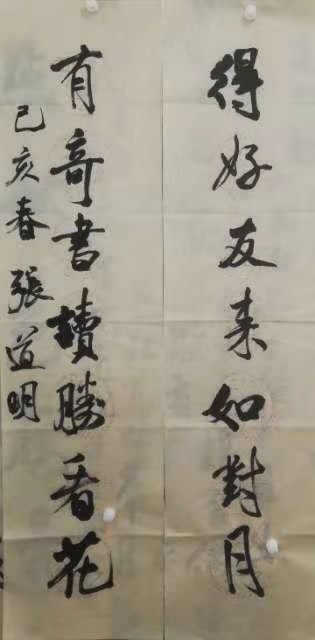 得好友来如對月
有奇書讀勝看花
己亥春張道明